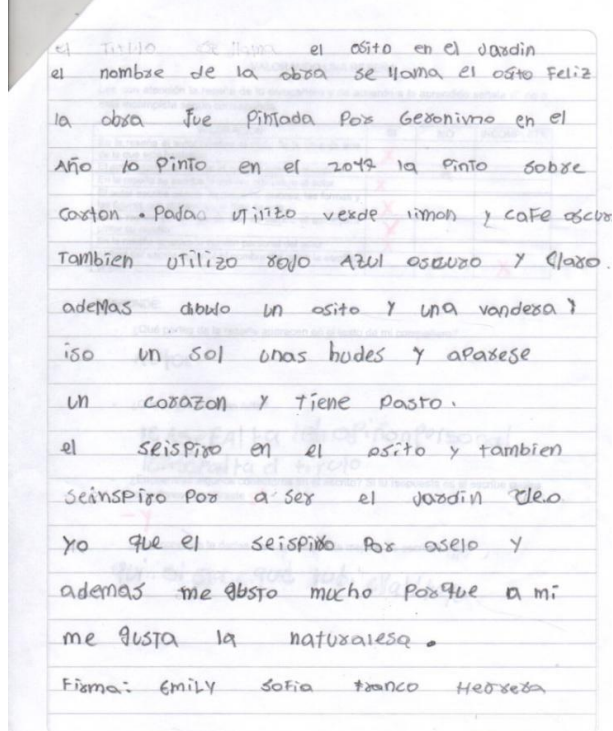 el Titulo se llama el osito en el Jardin
el nombre de la obra se llama el osito Feliz
la obra fue Pintada Por Geronimo en el
Año lo Pinto en el 2017 la Pinto sobre
carton. Pada utilizo verde limon y cafe oscuro
Tambien utilizo rojo Azul oscuro y Claro.
ademas dibujo un osito y una vandera y
iso un sol unas nudes y aparese
un corazon y tiene Pasto.
el seispiro en el osito y tambien
seinspiro Por a ser el Jardin Cleo
yo que el seispiro Por aselo y
ademas me gusto mucho Porque a mi
me gusta la naturalesa.
Firma: EMiLY Sofia franco Herrera